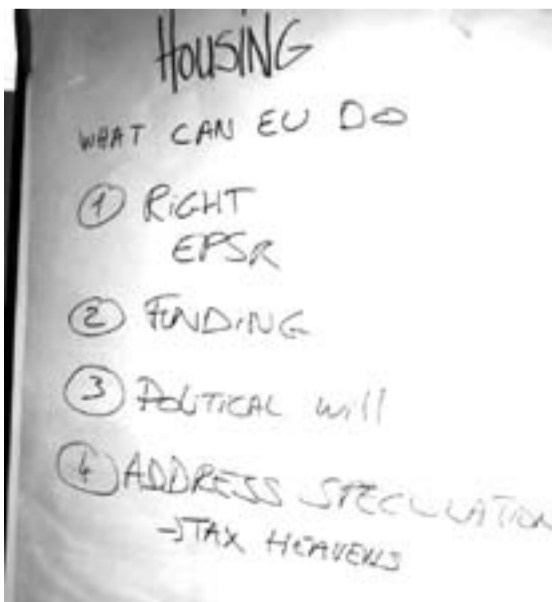 HOUSING
WHAT CAN EU DO
① RiGHT
EPSR
② FUNDiNG
③ POLiTiCAL will
④ ADDRESS SPECULATION
→ TAX HEAVENS